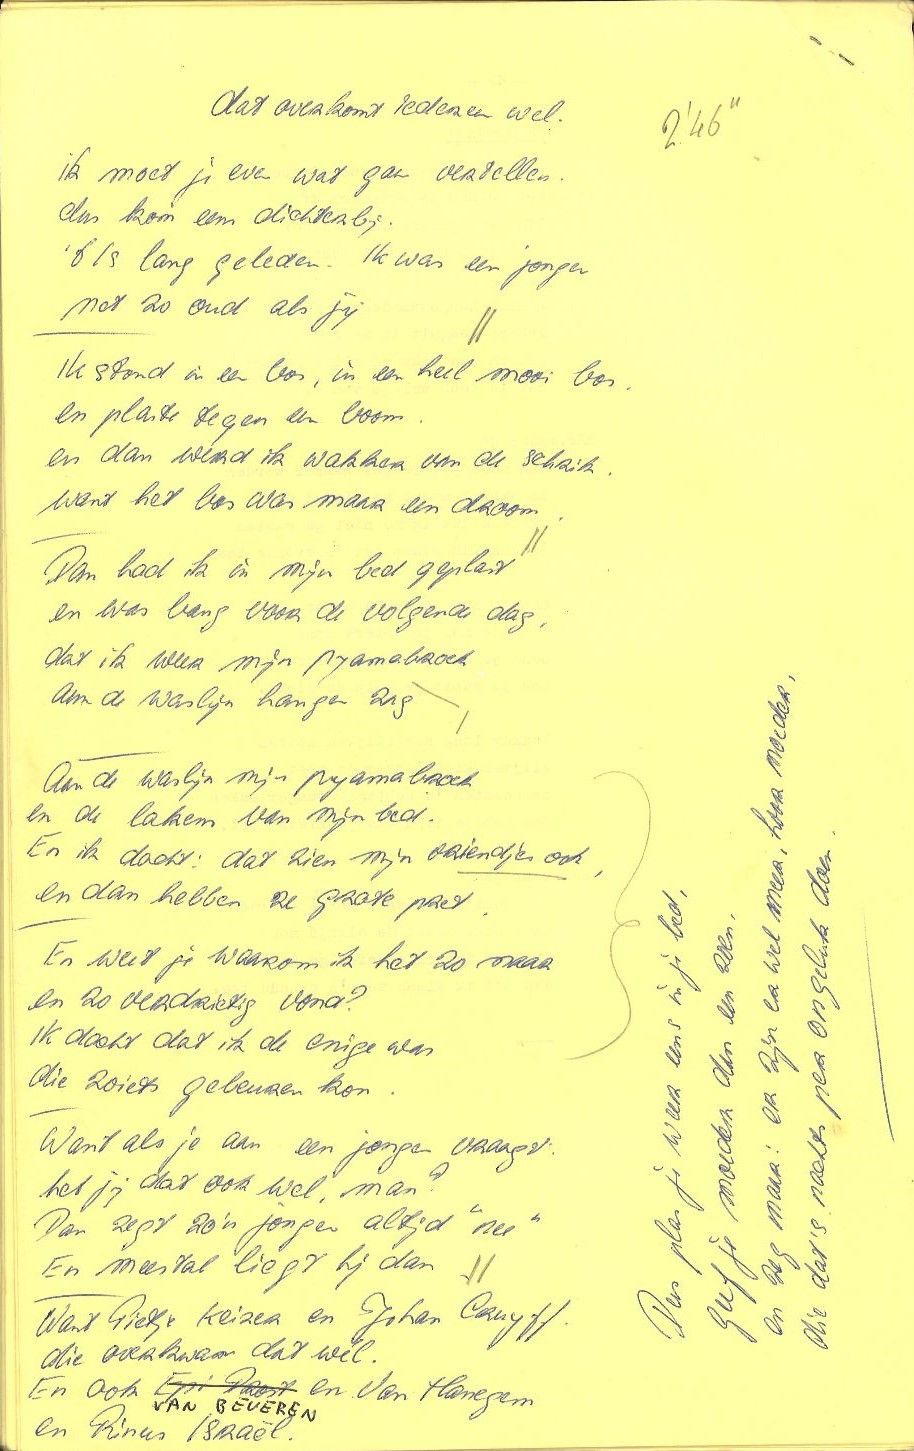 dat overkomt iedereen wel.
2'46"
ik moet je even wat gaan vertellen.
dus kom eens dichterbij.
't Is lang geleden. Ik was een jongen
net zo oud als jij
Ik stond in een bos, in een heel mooi bos.
en plaste tegen een boom.
en dan werd ik wakker van de schrik.
want het bos was maar een droom.
Dan had ik in mijn bed geplast
en was bang voor de volgende dag,
dat ik weer mijn pyamabroek
aan de waslijn hangen zag
Aan de waslijn mijn pyamabroek
en de lakens van mijn bed.
En ik dacht: dat zien mijn vriendjes ook,
en dan hebben ze grote pret.
En weet je waarom ik het zo naar
en zo verdrietig vond?
Ik dacht dat ik de enige was
die zoiets gebeuren kon.
Want als je aan een jongen vraagt:
heb jij dat ook wel, man?
Dan zegt zo'n jongen altijd "nee"
En meestal liegt hij dan
Want Pietje Keizer en Johan Cruyff.
die overkwam dat wél.
En ook Epi Drost en Van Hanegem
VAN BEVEREN
en Rinus Israël.
Dus plas je weer eens in je bed,
geef je moeder dan een zoen.
en zeg maar: er zijn er wel meer, hoor moeder,
die dat 's nachts per ongeluk doen.